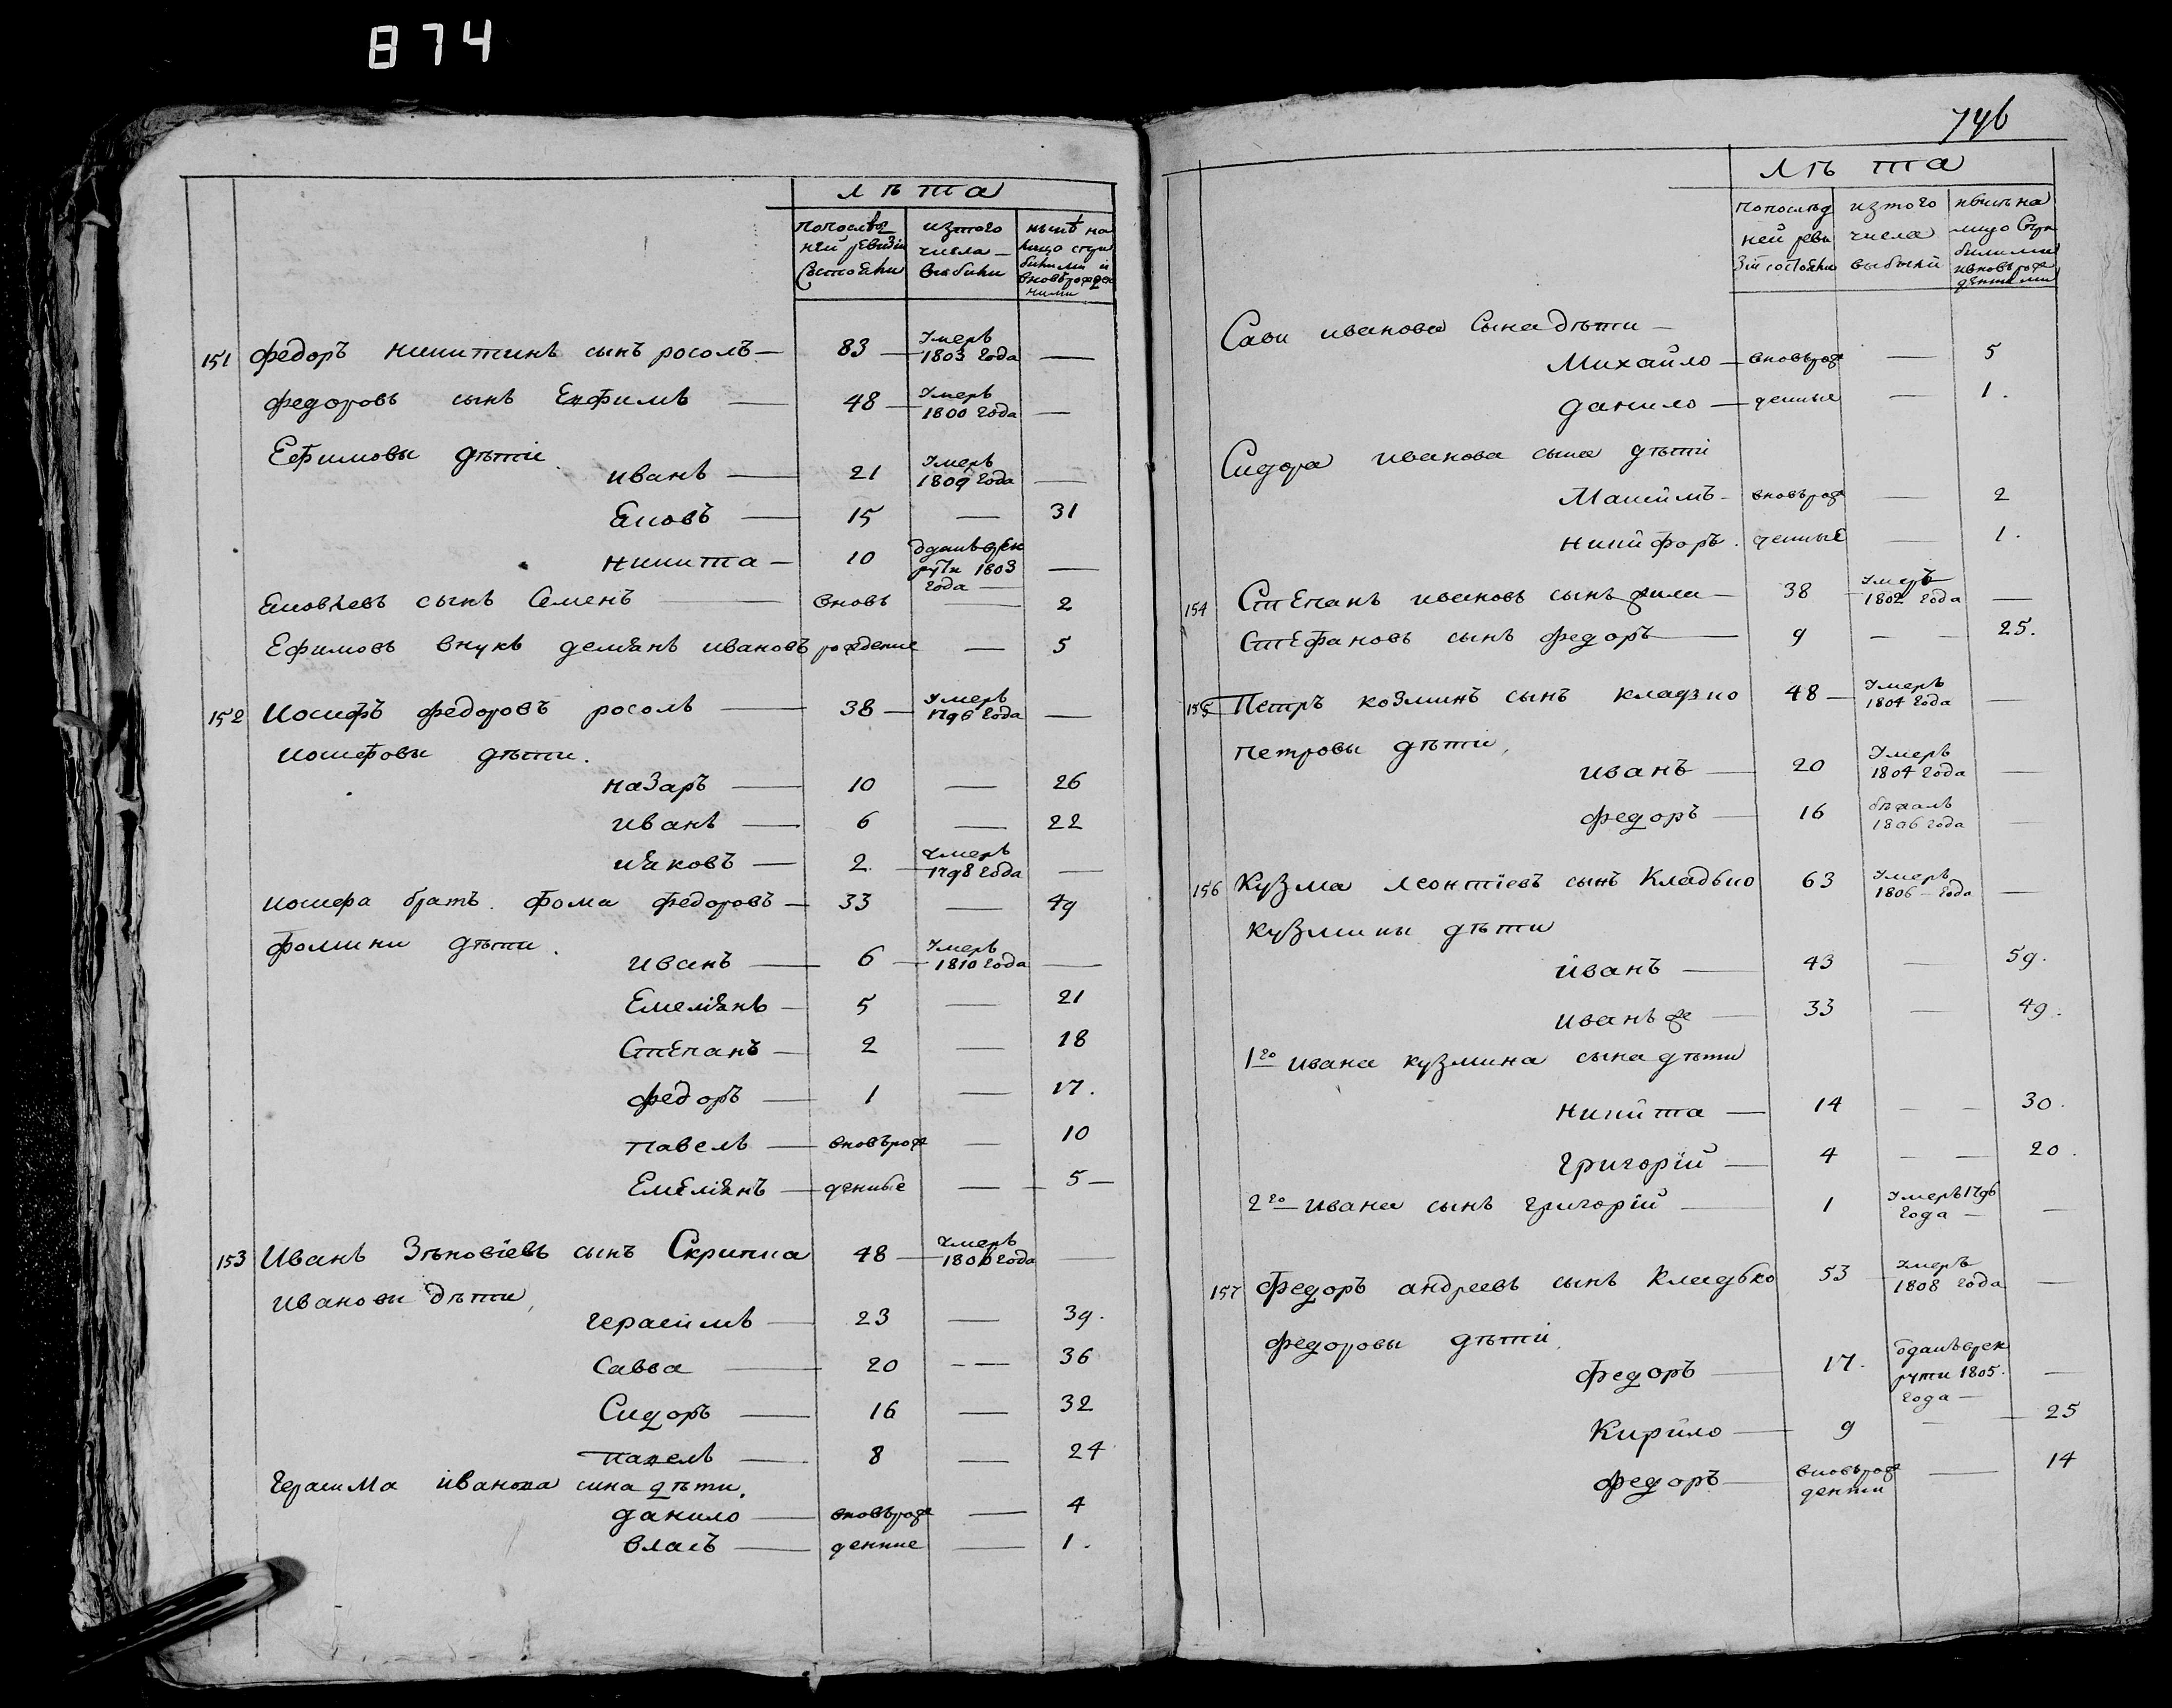 874
746
лѣта
попослѣд ней ревизіи состояли
изтого числа выбыли
нынѣ на лицо съпри былыми и вновьрожден ными
151 федоръ никитинъ сынъ росолъ — 83 — Умеръ 1803 года —
федоровъ сынъ Ефимъ — 48 — Умеръ 1800 года —
Ефимовы дѣти
иванъ — 21 Умеръ 1809 года —
Яковъ — 15 — 31
никита — 10 отданъ врек руты 1803 года —
Яковлевъ сынъ Семенъ — вновь — 2
Ефимовъ внукъ демянъ ивановъ рожденые — 5
152 Иосифъ федоровъ росолъ — 38 — Умеръ 1796 года —
иосифовы дѣти.
назаръ — 10 — 26
иванъ — 6 — 22
ияковъ — 2. — Умеръ 1798 года —
иосифа братъ. фома федоровъ — 33 — 49
фомини дѣти.
иванъ — 6 — Умеръ 1810 года —
Емелиянъ — 5 — 21
Степанъ — 2 — 18
федоръ — 1 — 17.
павелъ — вновьрож — 10
Емелиянъ — денные — 5 —
153 Иванъ Зѣновіевъ сынъ Скрипка 48 — Умеръ 1806 года —
ивановы дѣти,
герасимъ — 23 — 39.
савва — 20 — — 36
Сидоръ — 16 — 32
павелъ — 8 — 24
герасима иванова сина дѣти.
данило — вновьрож — 4
власъ — денние — 1.
лѣта
попослѣд ней реви зіи состояли
изтого числа выбыли
нынѣ на лицо съпри былыми ивновьрож денными
Сави иванова сына дѣти —
Михайло — вновьрож — 5
данило — денные — 1.
Сидора иванова сына дѣти
Максимъ — вновьрож — 2
никифоръ. денные — 1.
154 Степанъ ивановъ сынъ фила — 38 — Умеръ 1802 года —
Стефановъ сынъ федоръ — 9 — — 25.
155 Петръ козминъ сынъ кладько 48 — Умеръ 1804 года —
петровы дѣти,
иванъ — 20 Умеръ 1804 года —
федоръ — 16 бѣжалъ 1806 года —
156 Кузма леонтіевъ сынъ Кладько 63 Умеръ 1806 — года —
кузмины дѣти
иванъ — 43 — 59.
иванъ же — 33 — 49.
1го ивана кузмина сына дѣти
никита — 14 — — 30.
григорій — 4 — — 20.
2го ивана сынъ григорій — 1 Умеръ 1796 года — —
157 Федоръ андреевъ сынъ Кладько 53 — Умеръ 1808 года —
федоровы дѣти.
федоръ — 17. отданъ врек рути 1805. года — —
Кирило — 9 — — 25
федоръ — вновьрож денни — 14